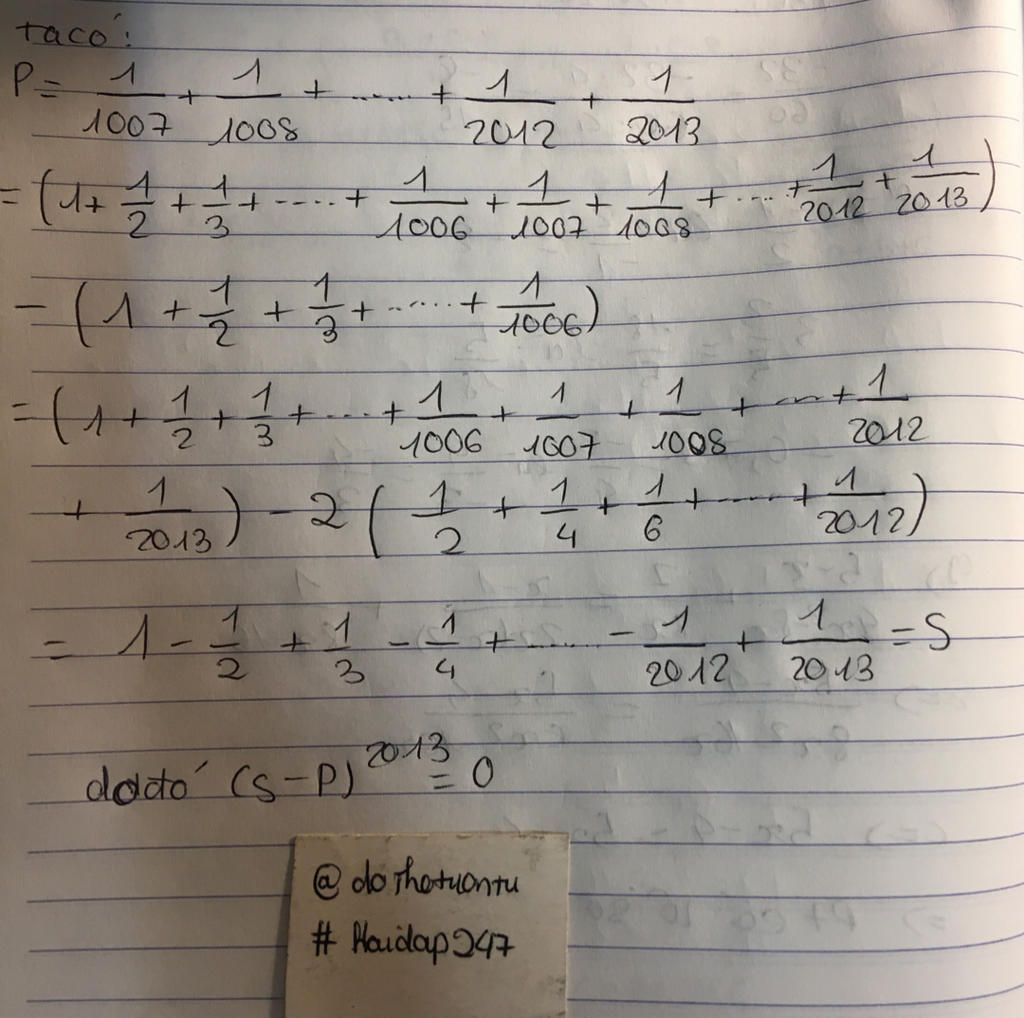 tacó:
P = 1/1007 + 1/1008 + ...... + 1/2012 + 1/2013
= (1 + 1/2 + 1/3 + ..... + 1/1006 + 1/1007 + 1/1008 + .... + 1/2012 + 1/2013)
- (1 + 1/2 + 1/3 + ...... + 1/1006)
= (1 + 1/2 + 1/3 + .... + 1/1006 + 1/1007 + 1/1008 + .... + 1/2012
+ 1/2013) - 2 (1/2 + 1/4 + 1/6 + ...... + 1/2012)
= 1 - 1/2 + 1/3 - 1/4 + ...... - 1/2012 + 1/2013 = S
dođó (S - P)^2013 = 0
@
#